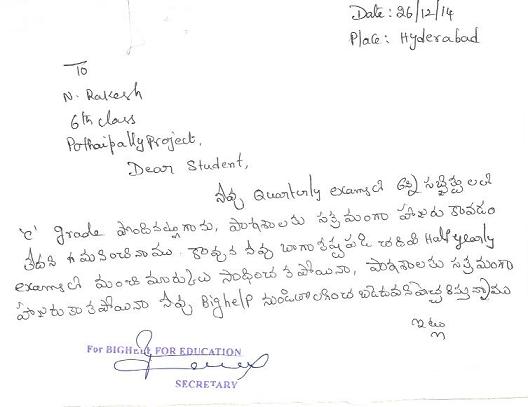 Date: 26/12/14
Place: Hyderabad
To
N. Rakesh
6th class
Pothaipally Project,
Dear Student,
నీవు Quarterly examsలో అన్ని సబ్జెక్టులలో
'C' grade పొందినట్లుగాను, పాఠశాలకు సక్రమంగా హాజరు కావడం
లేదని గమనించినాము. కావున నీవు బాగా కష్టపడి చదివి Half yearly
examsలో మంచి మార్కులు సాధించక పోయినా, పాఠశాలకు సక్రమంగా
హాజరు కాక పోయినా నీవు Bighelp నుండి తొలగించ బడెదవని హెచ్చరిస్తున్నాము
ఇట్లు
For BIGHELP FOR EDUCATION
SECRETARY